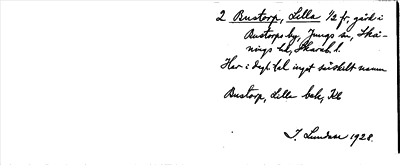 2 Bustorp, Lilla 1/2 fr, gård i
Bustorps by, Jungs sn, Skå-
nings hd, Skarab. l.
Har i dagl. tal inget särskilt namn
Bustorp, Lilla bsk, Kb
I. Lundén 1928.